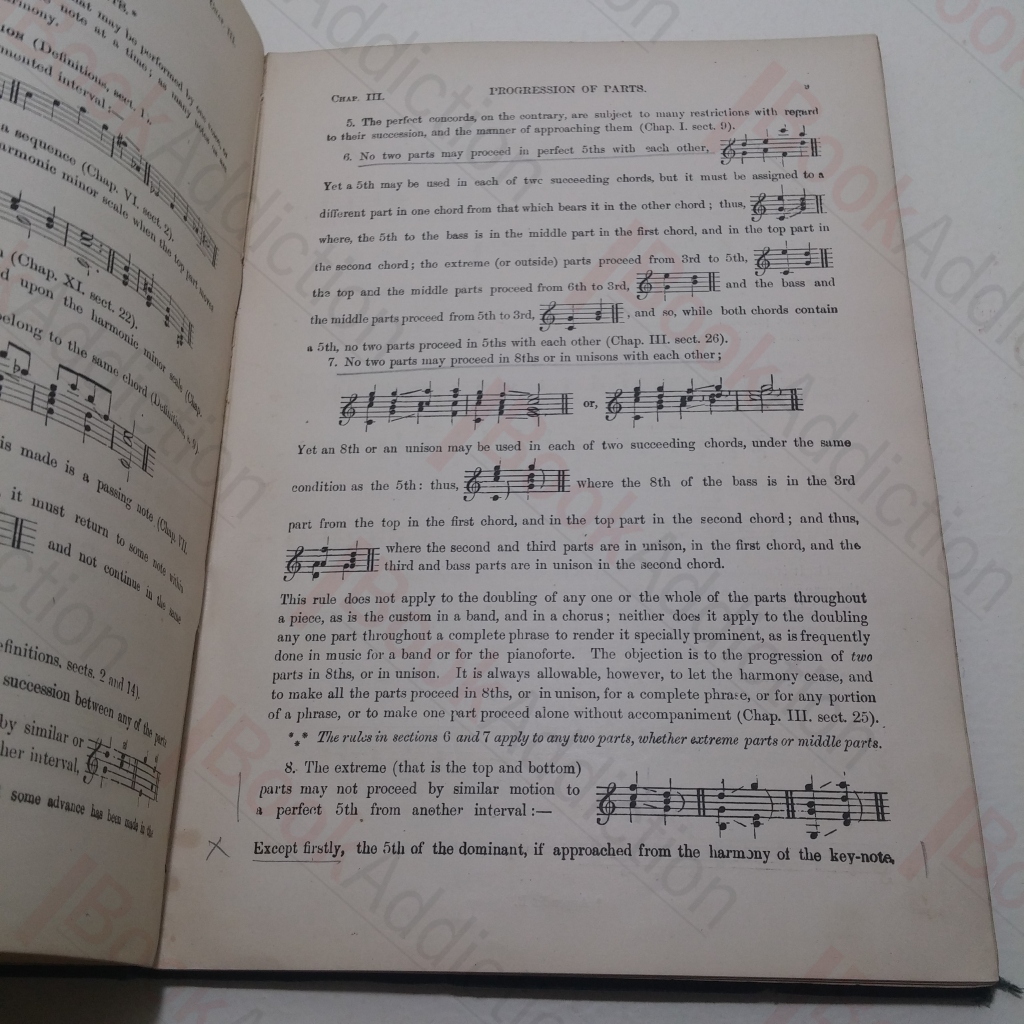 CHAP. III.
be performed by
note at a time; as many
(Definitions, sect. 1,
interval;—
a sequence (Chap. VI. sect. 2).
harmonic minor scale when the top part
(Chap. XI. sect. 22).
upon the harmonic minor scale (Chap.
belong to the same chord (Definitions, s. 9)
is made is a passing note (Chap. VII.
it must return to some note within
and not continue in the same
sects. 2 and 14).
succession between any of the parts
by similar or
her interval,
some advance has been made in the
CHAP. III. PROGRESSION OF PARTS. 9
5. The perfect concords, on the contrary, are subject to many restrictions with regard
to their succession, and the manner of approaching them (Chap. I. sect. 9).
6. No two parts may proceed in perfect 5ths with each other,
Yet a 5th may be used in each of two succeeding chords, but it must be assigned to a
different part in one chord from that which bears it in the other chord; thus,
where, the 5th to the bass is in the middle part in the first chord, and in the top part in
the second chord; the extreme (or outside) parts proceed from 3rd to 5th,
the top and the middle parts proceed from 6th to 3rd, and the bass and
the middle parts proceed from 5th to 3rd, , and so, while both chords contain
a 5th, no two parts proceed in 5ths with each other (Chap. III. sect. 26).
7. No two parts may proceed in 8ths or in unisons with each other;
or,
Yet an 8th or an unison may be used in each of two succeeding chords, under the same
condition as the 5th: thus, where the 8th of the bass is in the 3rd
part from the top in the first chord, and in the top part in the second chord; and thus,
where the second and third parts are in unison, in the first chord, and the
third and bass parts are in unison in the second chord.
This rule does not apply to the doubling of any one or the whole of the parts throughout
a piece, as is the custom in a band, and in a chorus; neither does it apply to the doubling
any one part throughout a complete phrase to render it specially prominent, as is frequently
done in music for a band or for the pianoforte. The objection is to the progression of two
parts in 8ths, or in unison. It is always allowable, however, to let the harmony cease, and
to make all the parts proceed in 8ths, or in unison, for a complete phrase, or for any portion
of a phrase, or to make one part proceed alone without accompaniment (Chap. III. sect. 25).
*** The rules in sections 6 and 7 apply to any two parts, whether extreme parts or middle parts.
8. The extreme (that is the top and bottom)
parts may not proceed by similar motion to
a perfect 5th from another interval:—
Except firstly, the 5th of the dominant, if approached from the harmony of the key-note,
BookAddiction